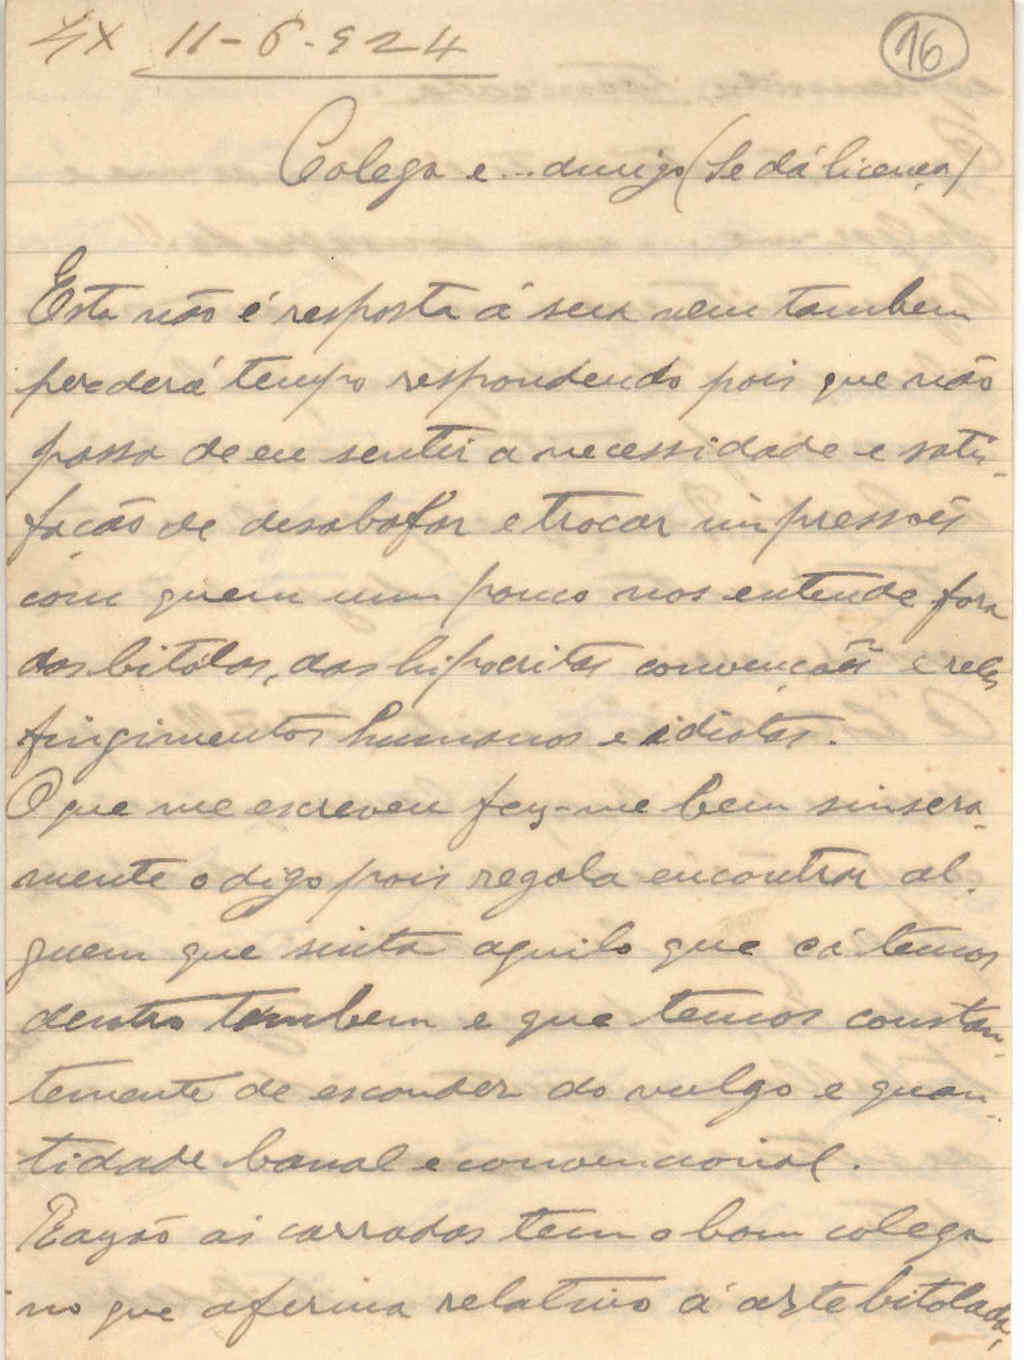 Lx 11-6-924
16
Colega e... amigo (se dá licença)
Esta não é resposta á sua nem tambem
perderá tempo respondendo pois que não
passa de eu sentir a necessidade e satis-
fação de desabafar e trocar impressões
com quem num pouco nos entende fora
das bitólas, das hipocritas convenções e reles
fingimentos humanos e idiotas.
O que me escreveu fez-me bem sinsera-
mente o digo pois regala encontrar al-
guem que sinta aquilo que cá temos
dentro tambem e que temos constan-
temente de esconder do vulgo e quan-
tidade banal e convencional.
Razão ás carradas tem o bom colega
no que aferma relativo á arte bitolada,